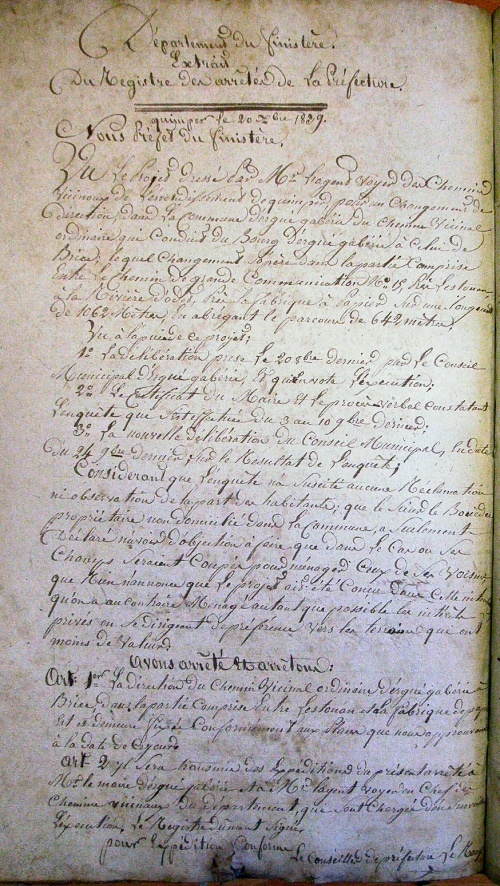 Département du Finistère.
Extrait
Du Registre des arrêtés de la Préfecture.
quimper le 20 Xbre 1839.
Nous Préfet du Finistère,
Vu le Projet dressé par Mr. l'agent voyer des Chemins
Vicinaux de l'arrondissement de quimper, pour un Changement de
Direction, dans la commune d'ergué gabéric du chemin Vicinal
ordinaire que Conduit du Bourg d'ergué gabéric à Celui de
Briec, lequel Changement s'opère dans la partie Comprise
entre le chemin de grande Communication No. 15, près Lestonan
et la Rivière d'odet, près la fabrique à papier sur une longueur
de 1062 Mètres, en abrégeant le parcours de 642 mètres,
Vu à l'appui de ce projet;
1o. La délibération prise le 20 8bre dernier, par le Conseil
Municipal d'ergué gabéric, & qui en vote l'exécution;
2o. Le Certificat du Maire et le procès verbal constatant
l'enquête que s'est effectuée du 3 au 10 9bre dernier;
3o. La nouvelle délibération du Conseil Municipal, en date
du 24 9bre dernier, sur le Résultat de l'enquête;
Considérant que l'enquête n'a suscité aucune Réclamation
ni observation de la part des habitants, que le Sieur le
propriétaire non domicilié dans la Commune, a Seulement
Déclaré n'avoir d'objection à faire que dans le Cas où Ses
Champs Seraient Coupés pour ménager Ceux de Ses Voisins,
que Rien n'annonce que le projet ait été Conçu dans Cette
qu'on a au contraire Ménagé autant que possible les intérêts
privés en se dirigeant de préférence vers les terrains qui ont
moins de Valeur;
avons arrêté et arrêtons:
Art. 1er. La direction du Chemin Vicinal ordinaire d'ergué gabéric à
Briec, dans la partie Comprise entre Lestonan et la fabrique de papier
est et demeure fixée Conformément aux plans que nous approuvons
à la date de Ce jour.
Art. 2. Il sera transmis des Expéditions du présent arrêté à
Mr. le maire d'ergué gabéric et à Mr. l'agent voyer en Chef des
Chemins vicinaux du département, que sont Chargés d'en
l'exécution. Le Registre dûment signé
pour Expédition Conforme
Le Conseiller de préfecture